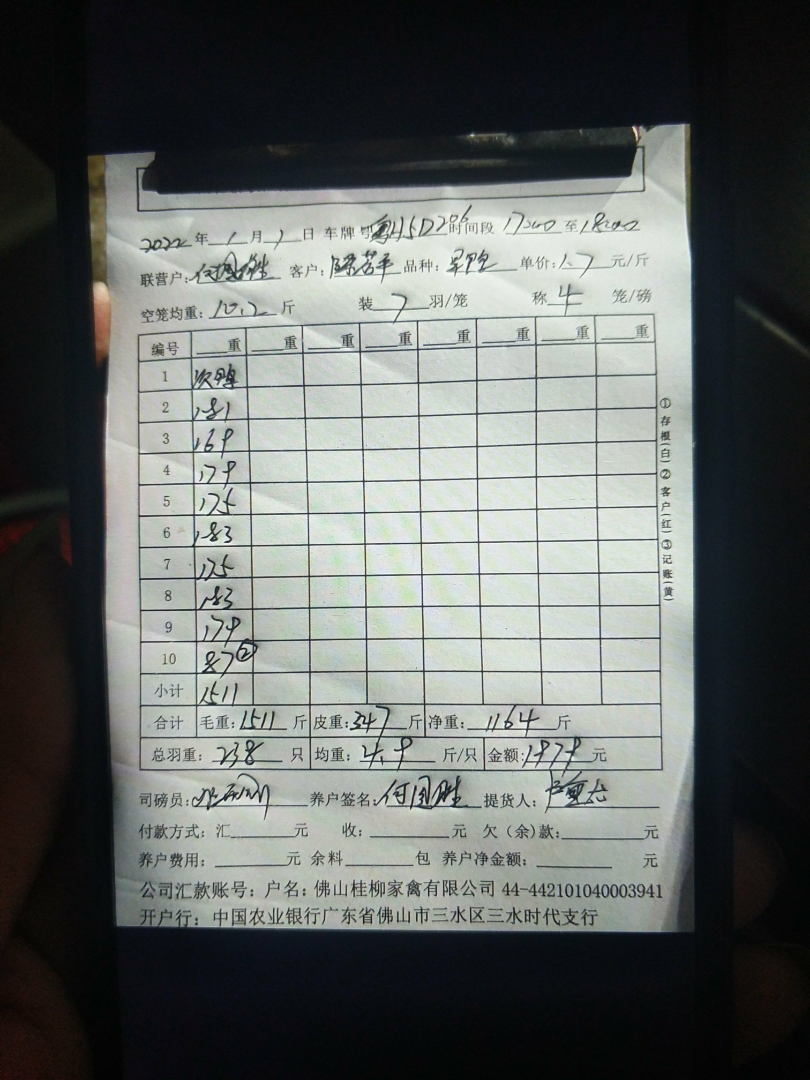 2022年1月1日 车牌号粤H5D296时间段 17:00至18:00
联营户:何国胜 客户: 品种: 单价:1.7元/斤
空笼均重:10.2斤 装7羽/笼 称4笼/磅
编号 重 重 重 重 重 重 重 重
1 次鸭
2 181
3 169
4 179
5 175
6 183
7 175
8 183
9 179
10 87②
小计 1511
合计 毛重:1511斤 皮重:347斤 净重:1164斤
总羽重:238只 均重:4.9斤/只 金额:1979元
司磅员: 养户签名:何国胜 提货人:
付款方式:汇 元 收: 元 欠(余)款: 元
养户费用: 元 余料 包 养户净金额: 元
公司汇款账号:户名:佛山桂柳家禽有限公司 44-442101040003941
开户行:中国农业银行广东省佛山市三水区三水时代支行
①存根(白)②客户(红)③记账(黄)